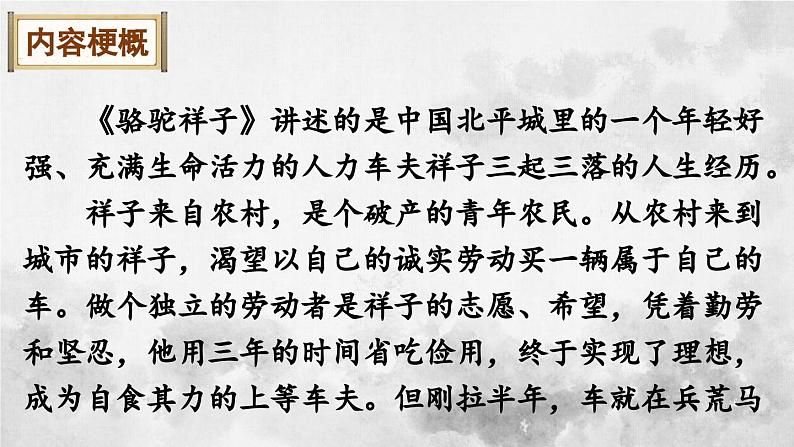 内容梗概
《骆驼祥子》讲述的是中国北平城里的一个年轻好
强、充满生命活力的人力车夫祥子三起三落的人生经历。
祥子来自农村，是个破产的青年农民。从农村来到
城市的祥子，渴望以自己的诚实劳动买一辆属于自己的
车。做个独立的劳动者是祥子的志愿、希望，凭着勤劳
和坚忍，他用三年的时间省吃俭用，终于实现了理想，
成为自食其力的上等车夫。但刚拉半年，车就在兵荒马